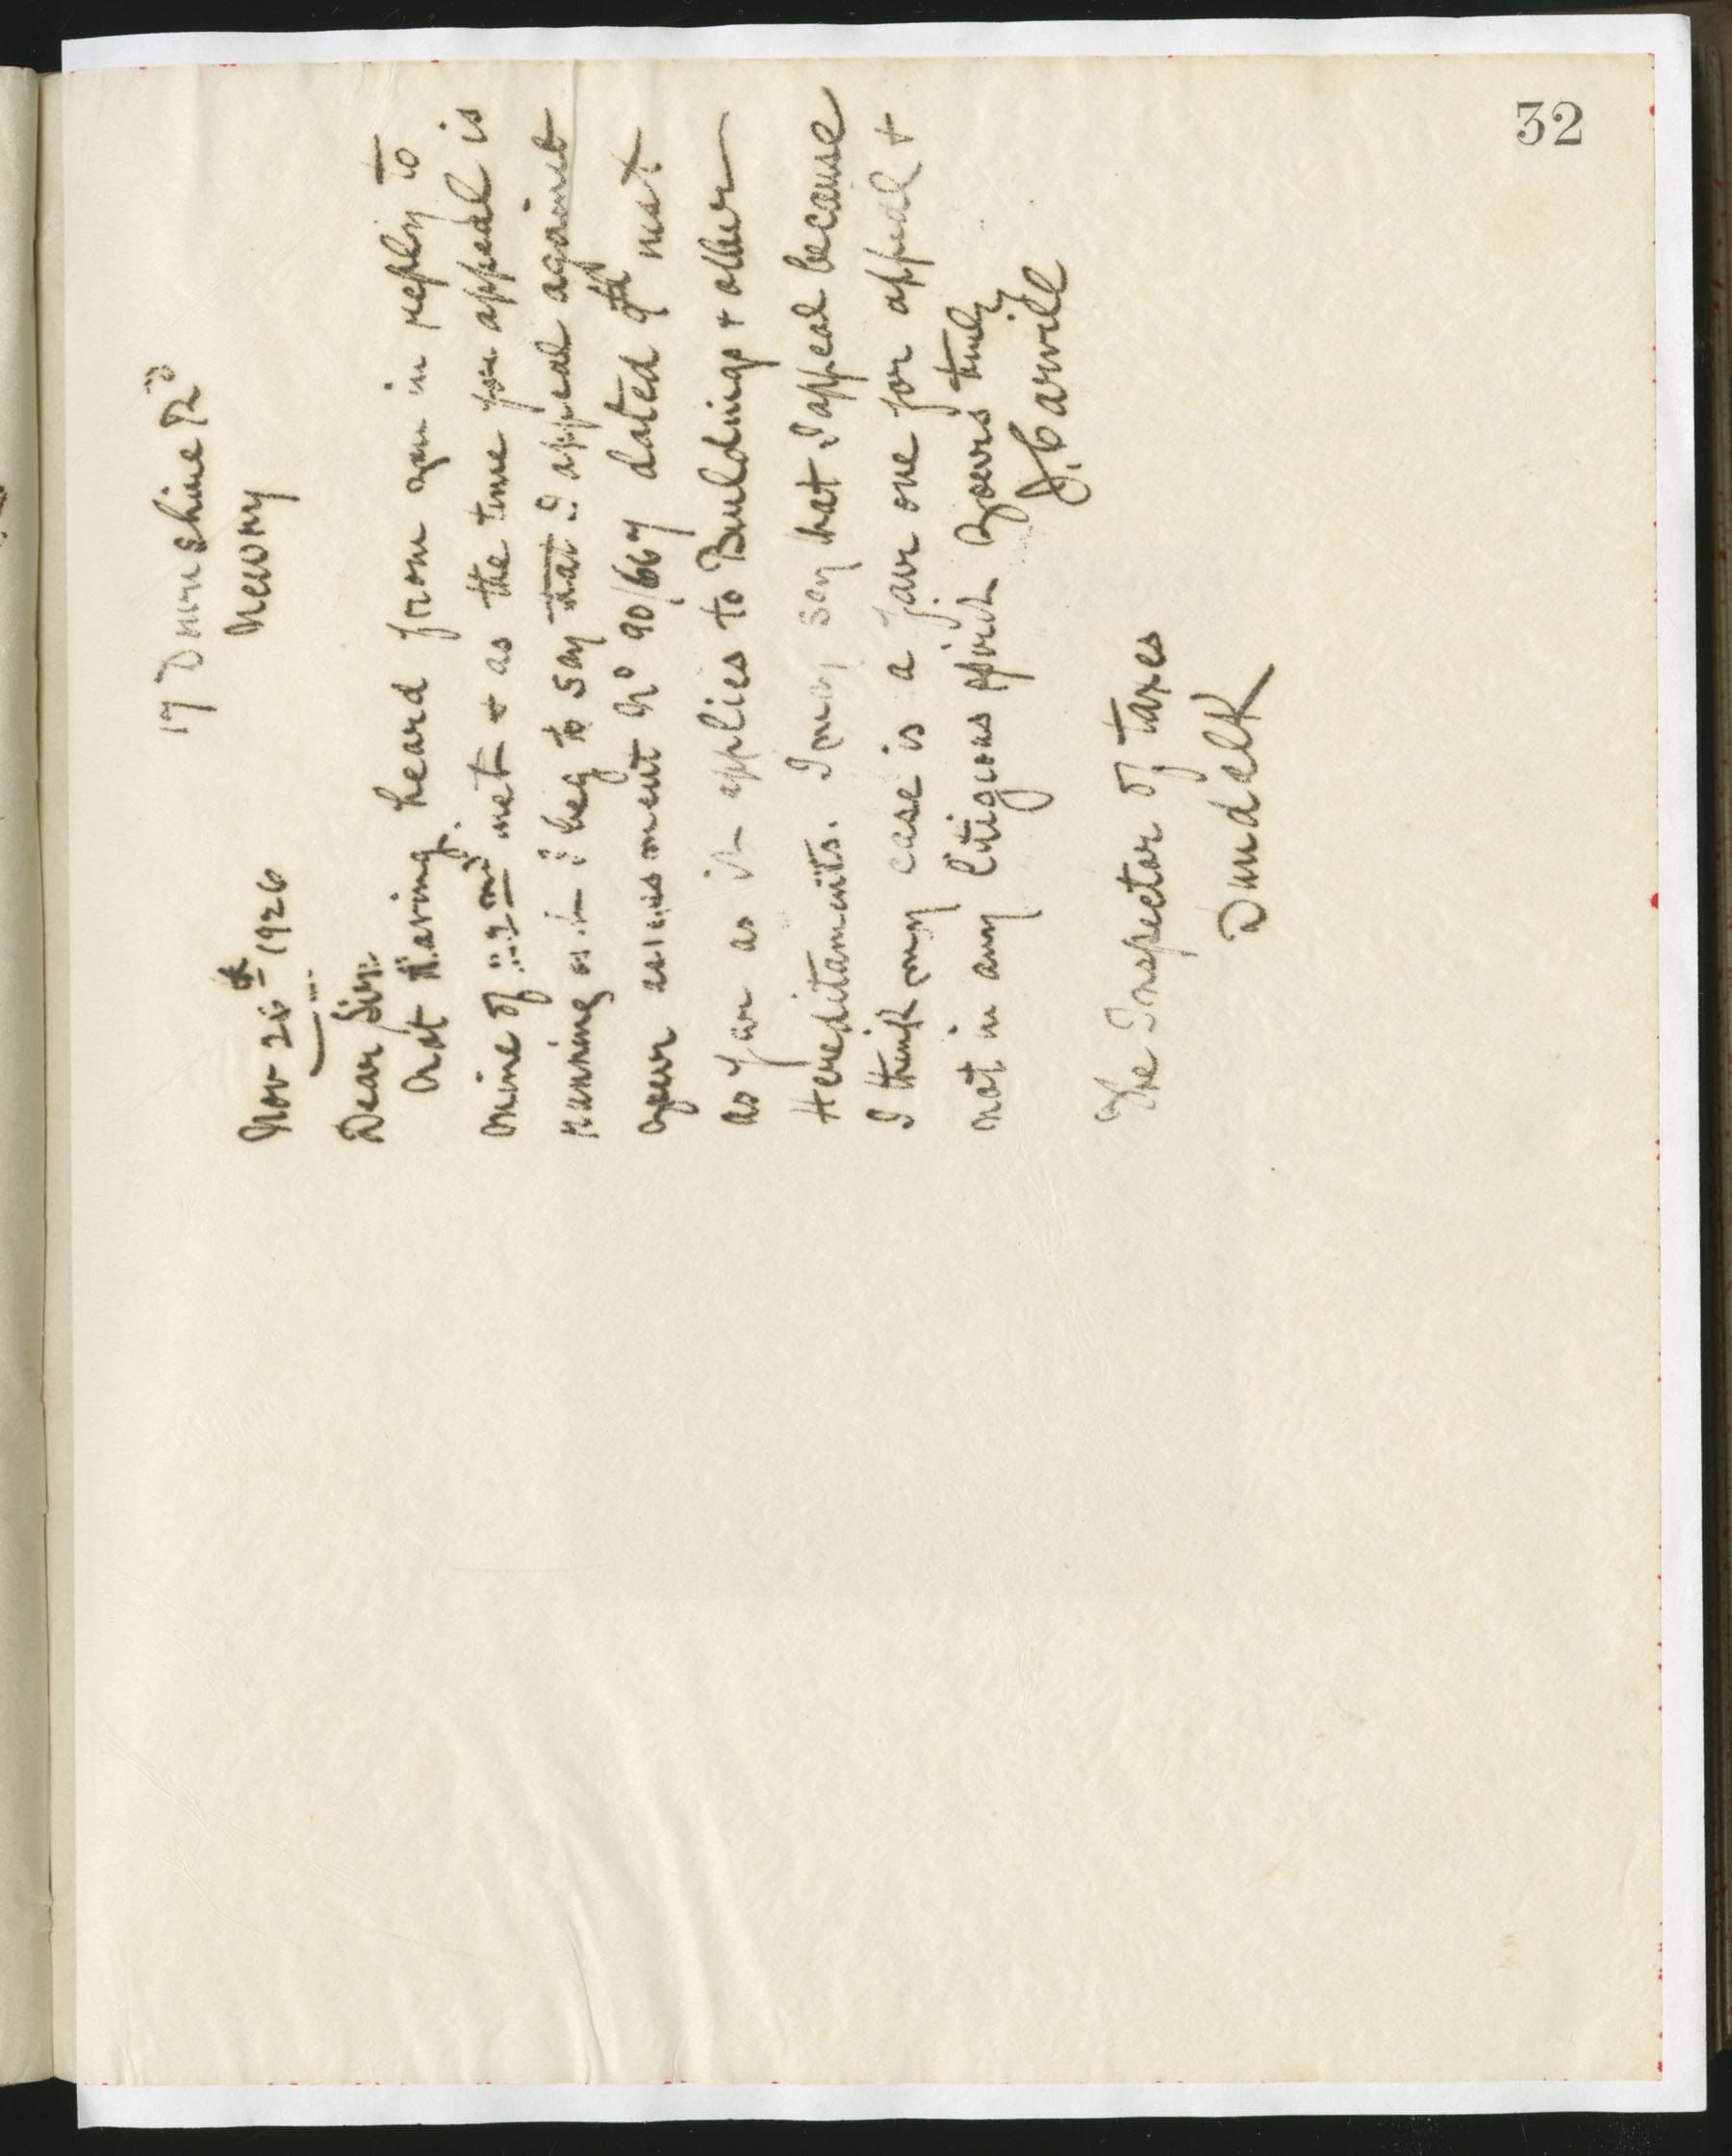 32
17 Dromshine Rd
Newry
Nov 26th 1926
Dear Sir:
Not having heard from you in reply to
mine of 22nd inst & as the time for appeal is
running out I beg to say that I appeal against
your assessment No 90/667 dated 9th inst
as far as it applies to Buildings & other
Hereditaments. I may say that I appeal because
I think my case is a fair one for appeal &
not in any litigious spirit Yours truly
J. Carvill
The Inspector of Taxes
Dundalk